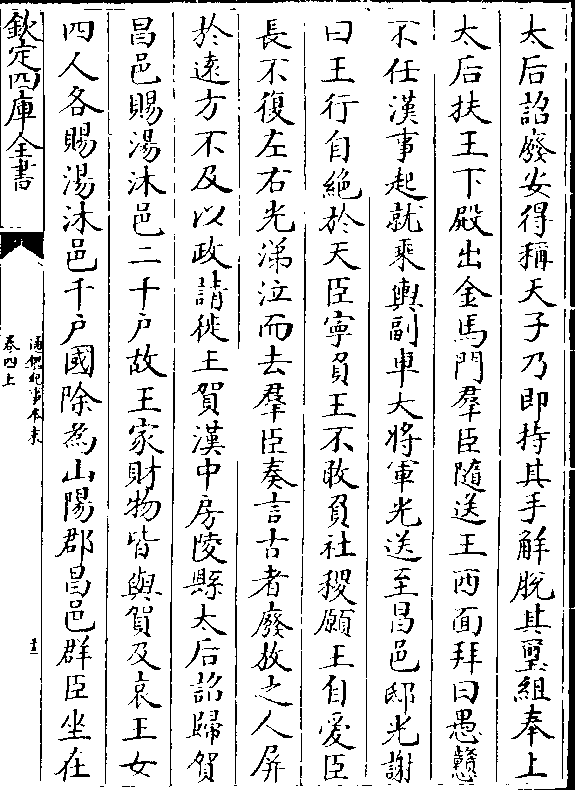 太后詔廢安得稱天子乃即持其手解脫其璽組奉上
太后扶王下殿出金馬門羣臣隨送王西面拜曰愚戇
不任漢事起就乘輿副車大將軍光送至昌邑邸光謝
曰王行自絶於天臣寧負王不敢負社稷願王自愛臣
長不復左右光涕泣而去羣臣奏言古者廢放之人屏
於逺方不及以政請徙王賀漢中房陵縣太后詔歸賀
昌邑賜湯沐邑二千户故王家財物皆與賀及哀王女
四人各賜湯沐邑千户國除為山陽郡昌邑群臣坐在
欽定四庫全書
通鑑紀事本末
卷四上